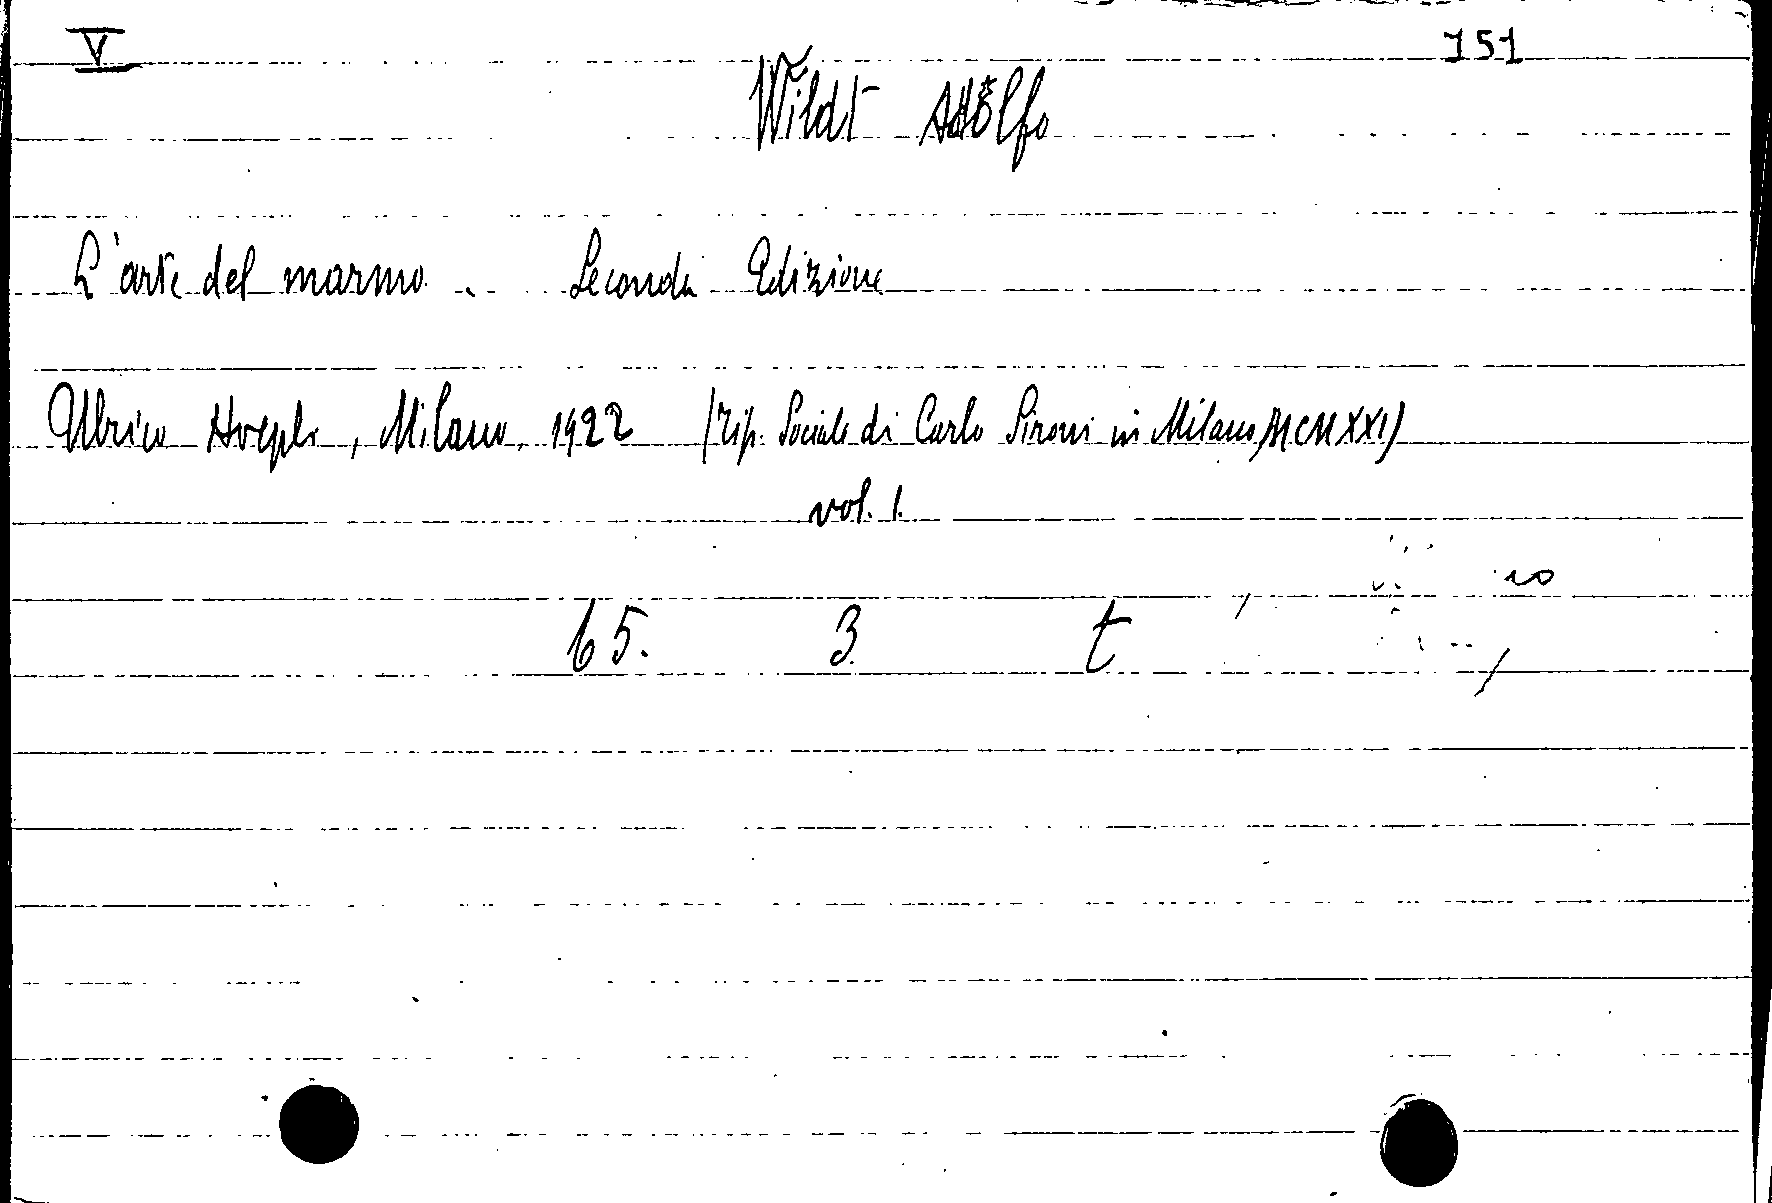 V 151
Wildt Adolfo
L'arte del marmo. Seconda Edizione
Ulrico Hoepli, Milano, 1922 (Tip. Sociale di Carlo Sironi in Milano, MCMXXI)
vol. 1.
65. 3 t